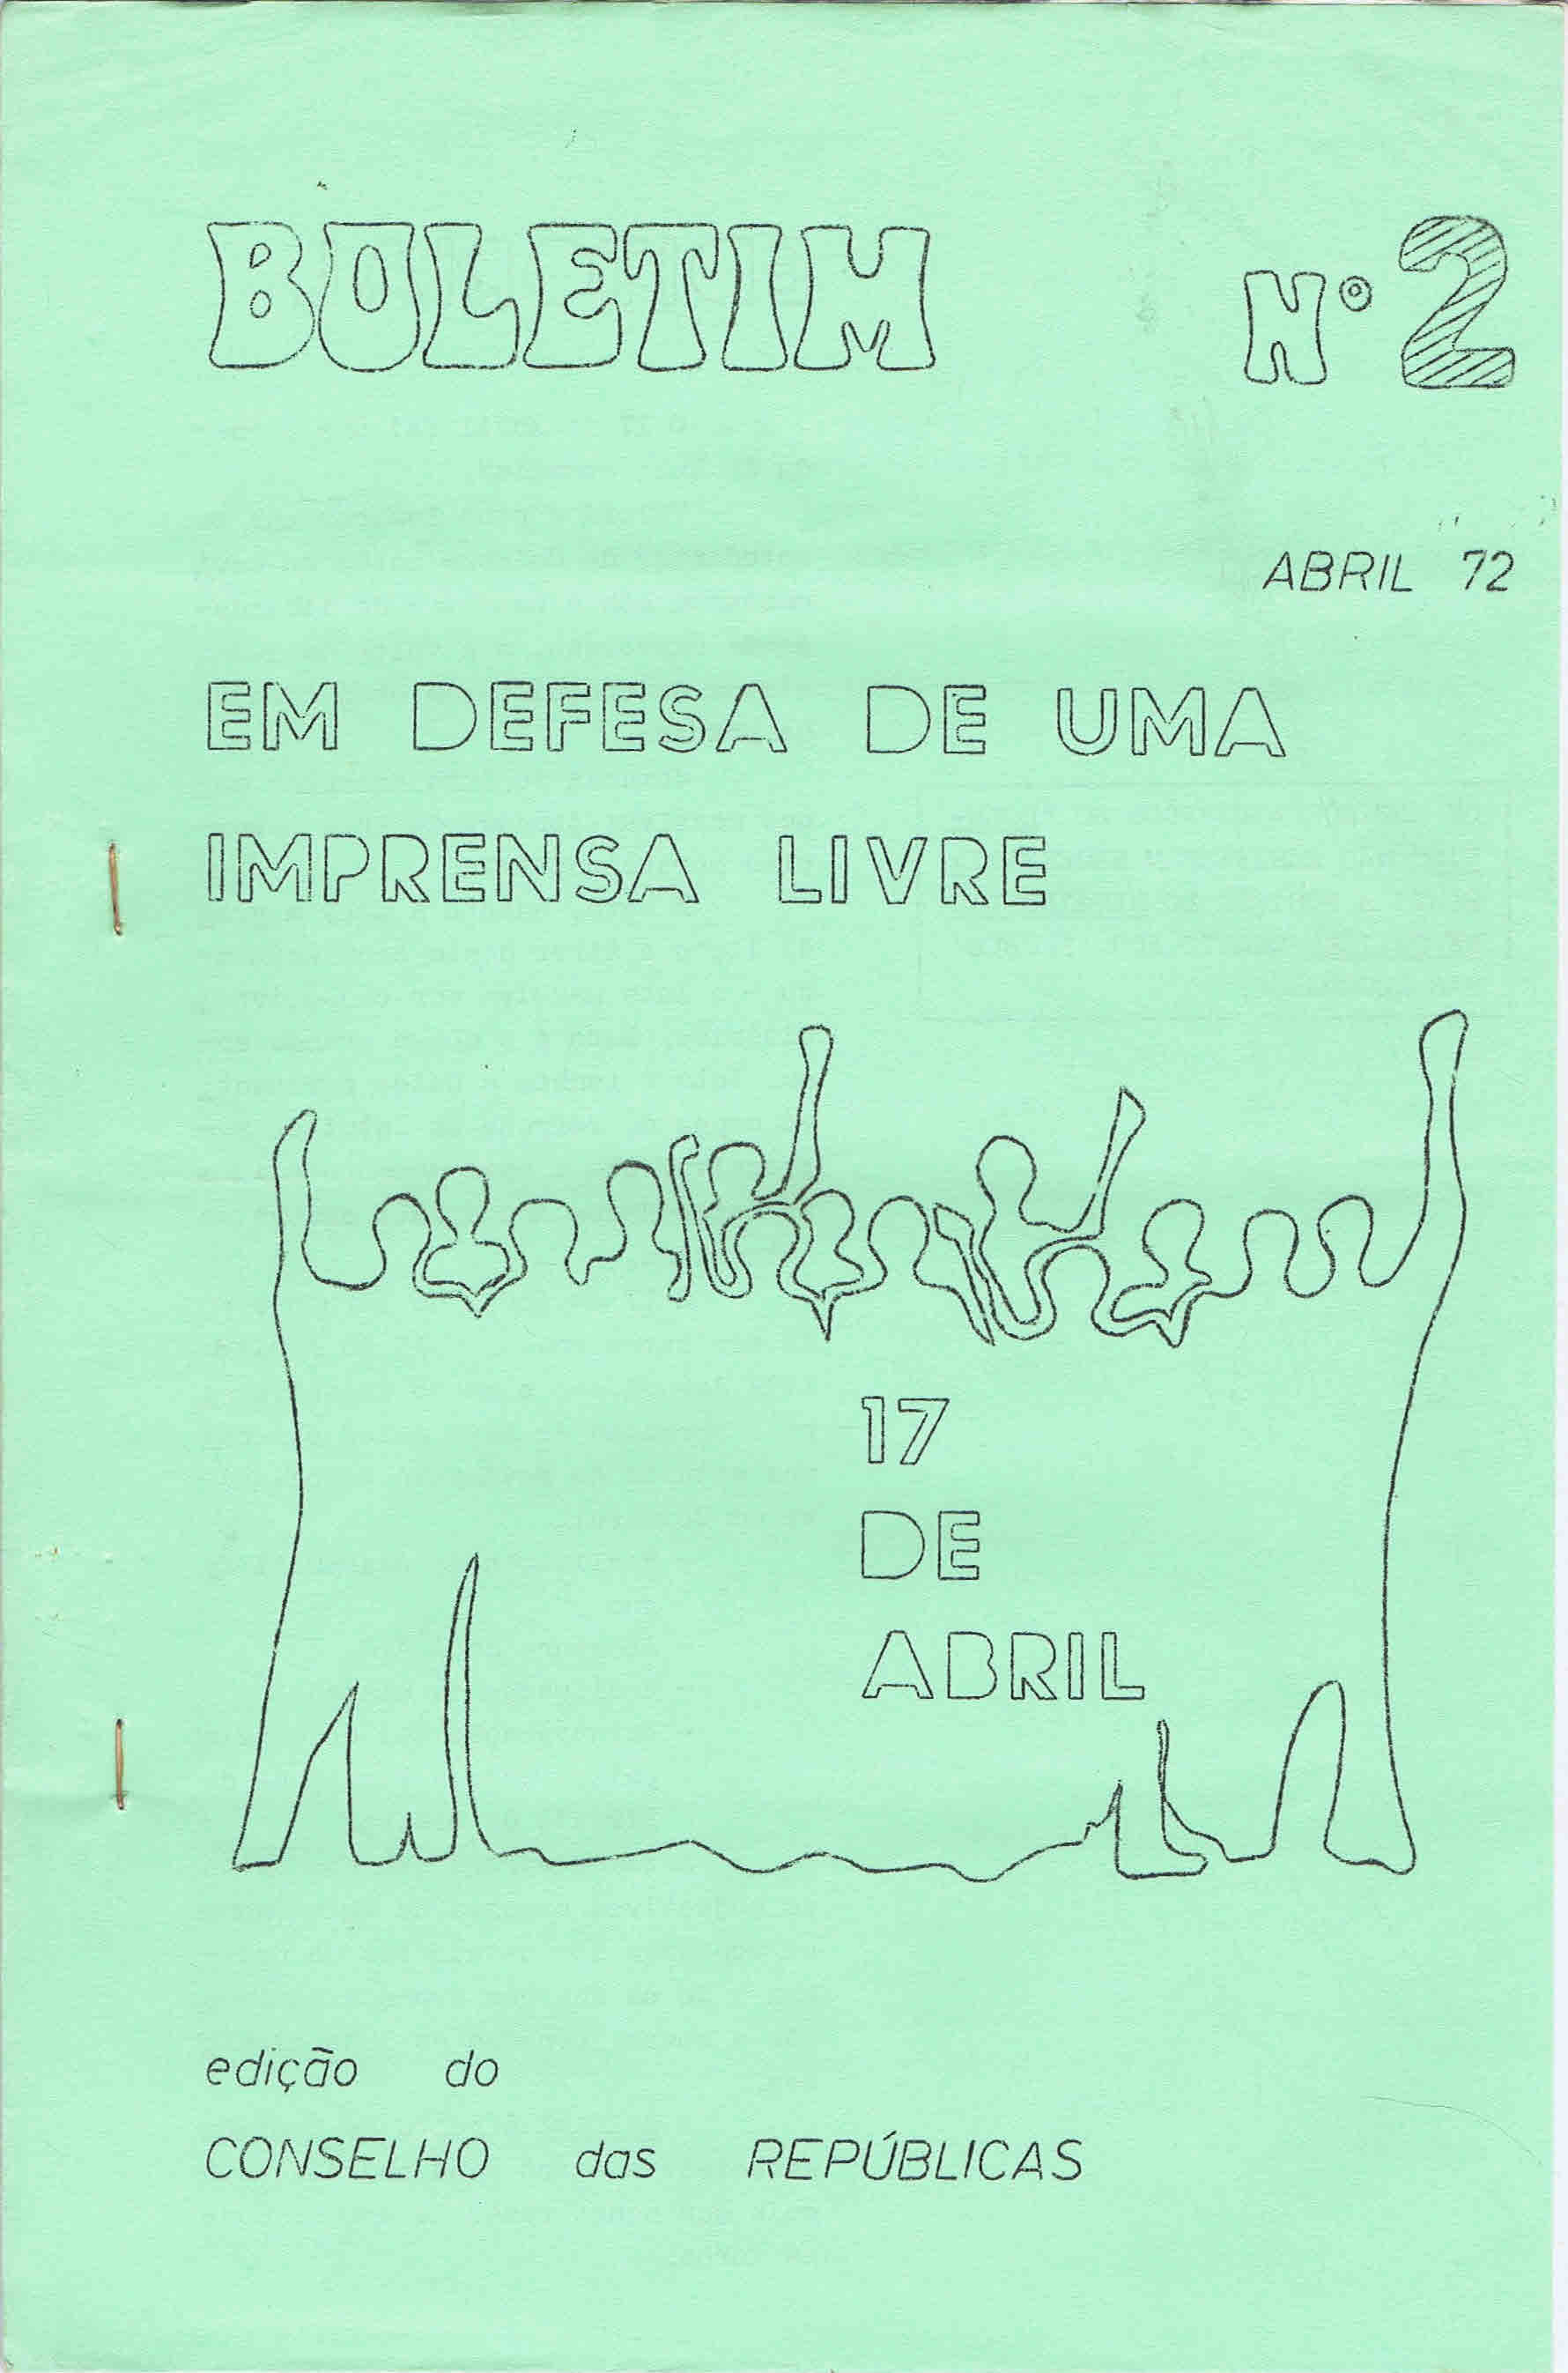 BOLETIM Nº 2
ABRIL 72
EM DEFESA DE UMA
IMPRENSA LIVRE
17
DE
ABRIL
edição do
CONSELHO das REPÚBLICAS